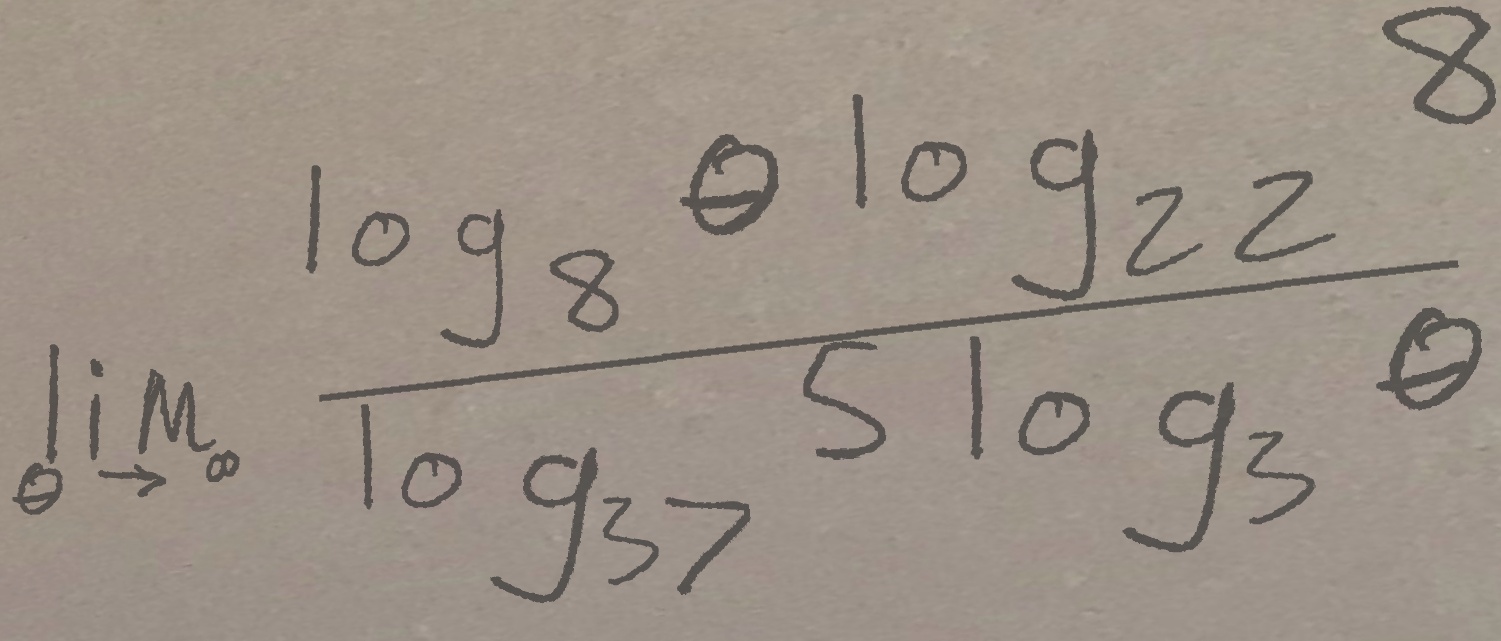 \lim_{\theta \to \infty} \frac{\log_{8} \theta \log_{22} 8}{\log_{37} 5 \log_{3} \theta}